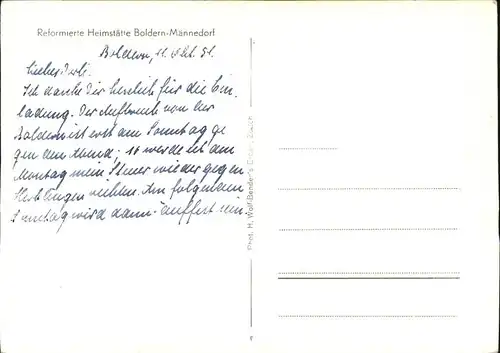 Reformierte Heimstätte Boldern-Männedorf
Boldern, 11. Okt. 51.
Ich danke Dir herzlich für die Ein-
ladung. Der Aufbruch von der
Boldern ist erst am Sonntag ge
gen den Abend; so werde ich am
Montag mein Steuer wieder gegen
richten. Am folgenden
Sonntag wird dann
Phot. H. Wolf-Bender's Erben, Zürich